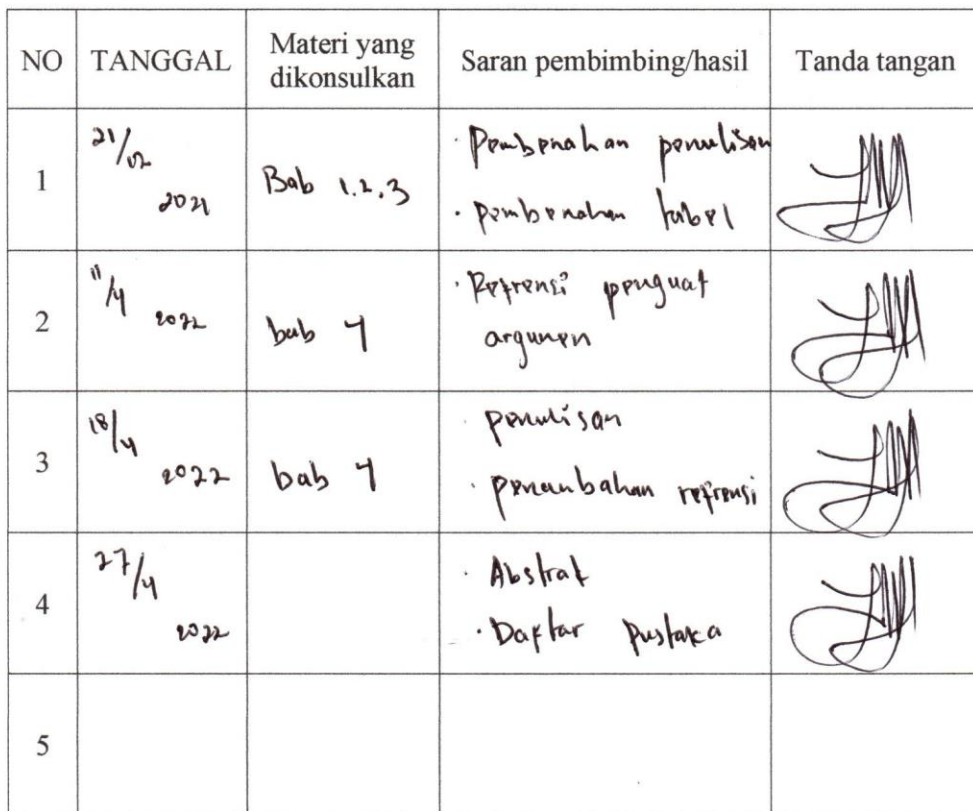 NO TANGGAL Materi yang dikonsulkan Saran pembimbing/hasil Tanda tangan
1 21/02 2021 Bab 1.2.3 · Pembenahan penulisan
· pembenahan tabel
2 11/4 2022 bab 4 · Refrensi penguat
argumen
3 18/4 2022 bab 4 · penulisan
· penambahan refrensi
4 27/4 2022 · Abstrak
· Daftar pustaka
5